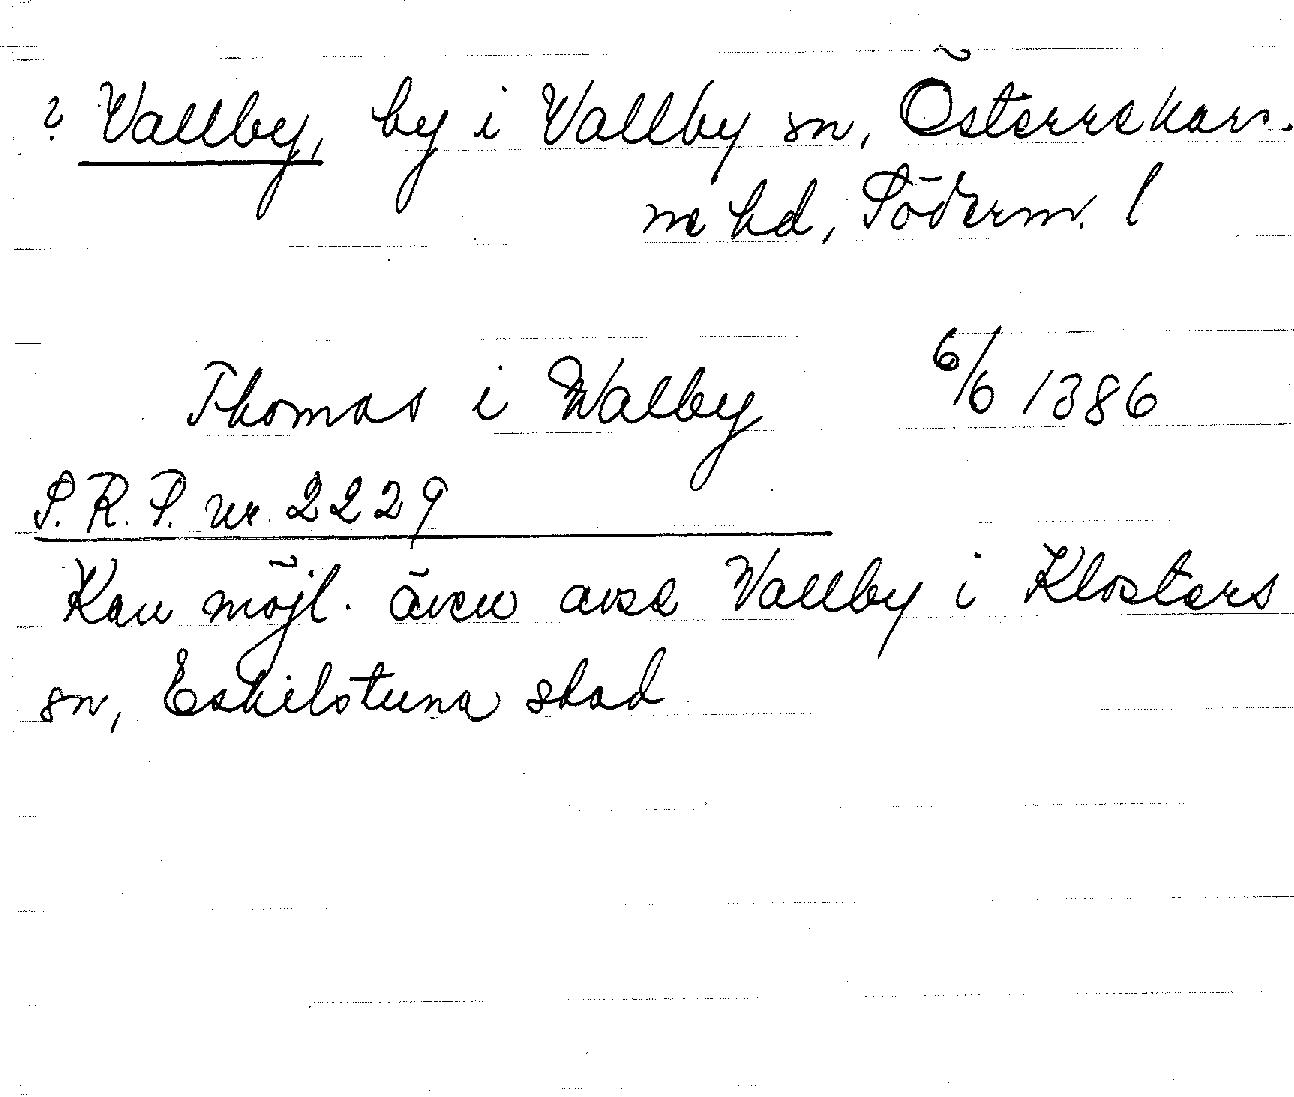 ? Vallby, by i Vallby sn, Österrekar-
ne hd, Söderm. l
Thomas i Walby 6/6 1386
S.R.P. nr. 2229
Kan möjl. även avse Vallby i Klosters
sn, Eskilstuna stad